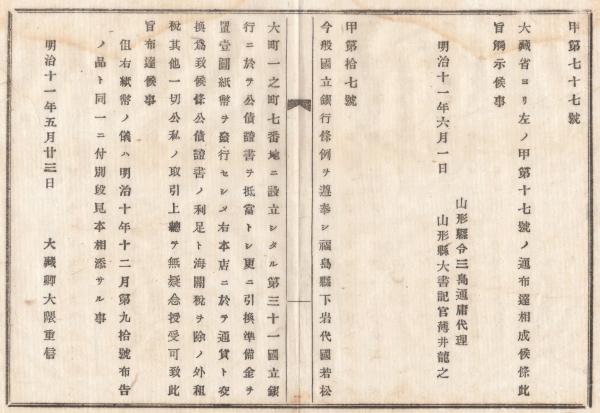 甲第七十七號
大藏省ヨリ左ノ甲第十七號ノ通布達相成候條此
旨觸示候事
明治十一年六月一日
山形縣令三島通庸代理
山形縣大書記官薄井龍之
甲第拾七號
今般國立銀行條例ヲ遵奉シ福島縣下岩代國若松
大町一之町七番地ニ設立シタル第三十一國立銀
行ニ於テ公債證書ヲ抵當トシ更ニ引換準備金ヲ
置壹圓紙幣ヲ發行セシメ右本店ニ於テ通貨ト交
換爲致候條公債證書ノ利足ト海關税ヲ除ノ外租
税其他一切公私ノ取引上總テ無疑念授受可致此
旨布達候事
但右紙幣ノ儀ハ明治十年十二月第九拾號布告
ノ品ト同一ニ付別段見本相添サル事
明治十一年五月廿三日
大藏卿大隈重信